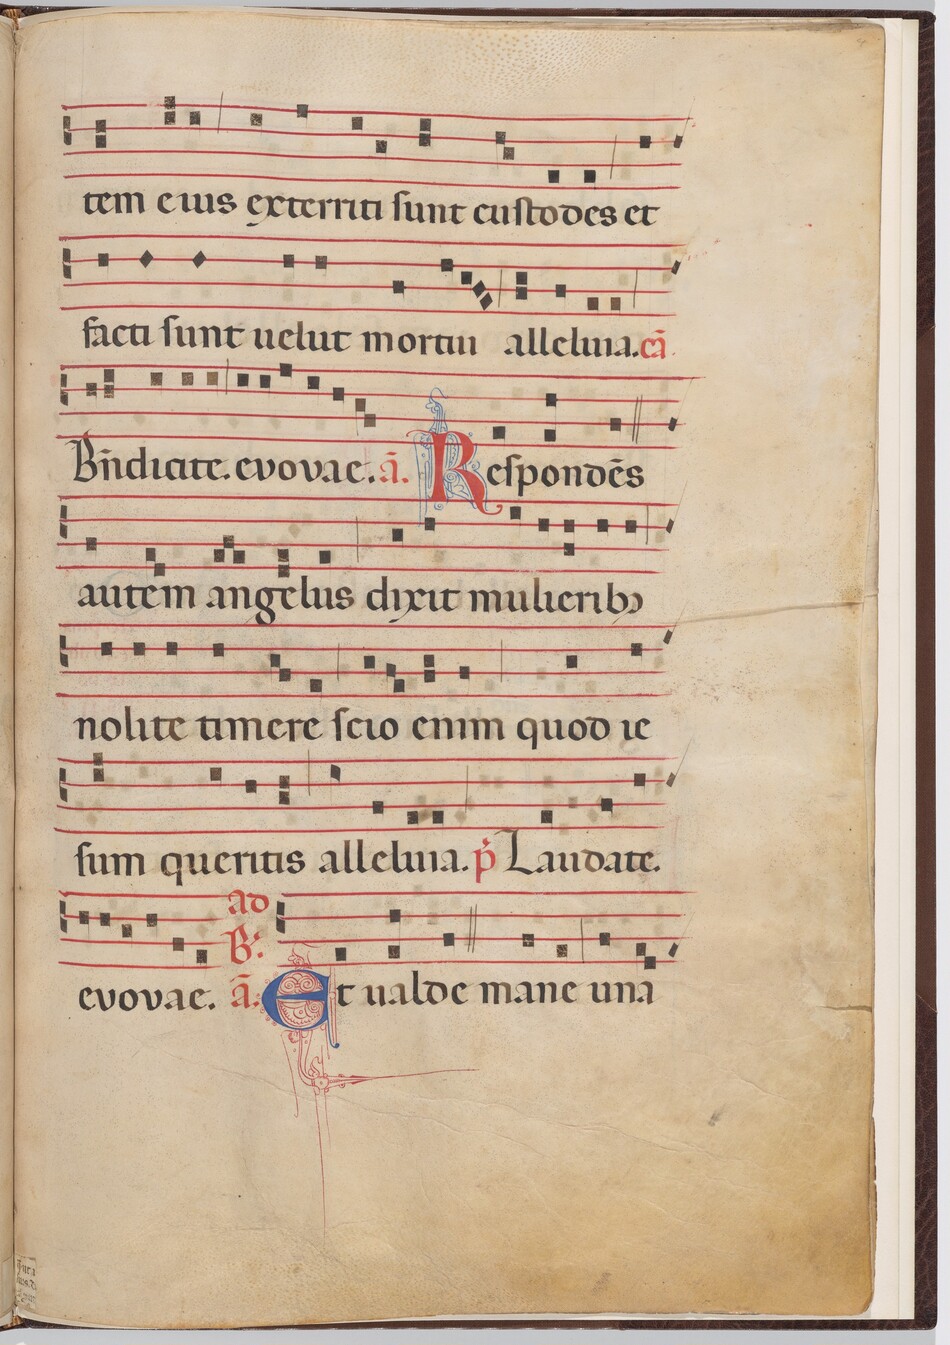 tem eius exterriti sunt custodes et
facti sunt uelut mortui alleluia. cā
Bn̄dicite. evovae. ā. Respondēs
autem angelus dixit mulieribꝫ
nolite timere scio enim quod ie
sum queritis alleluia. p̄ Laudate.
ad
B.
evovae. ā. Et ualde mane una